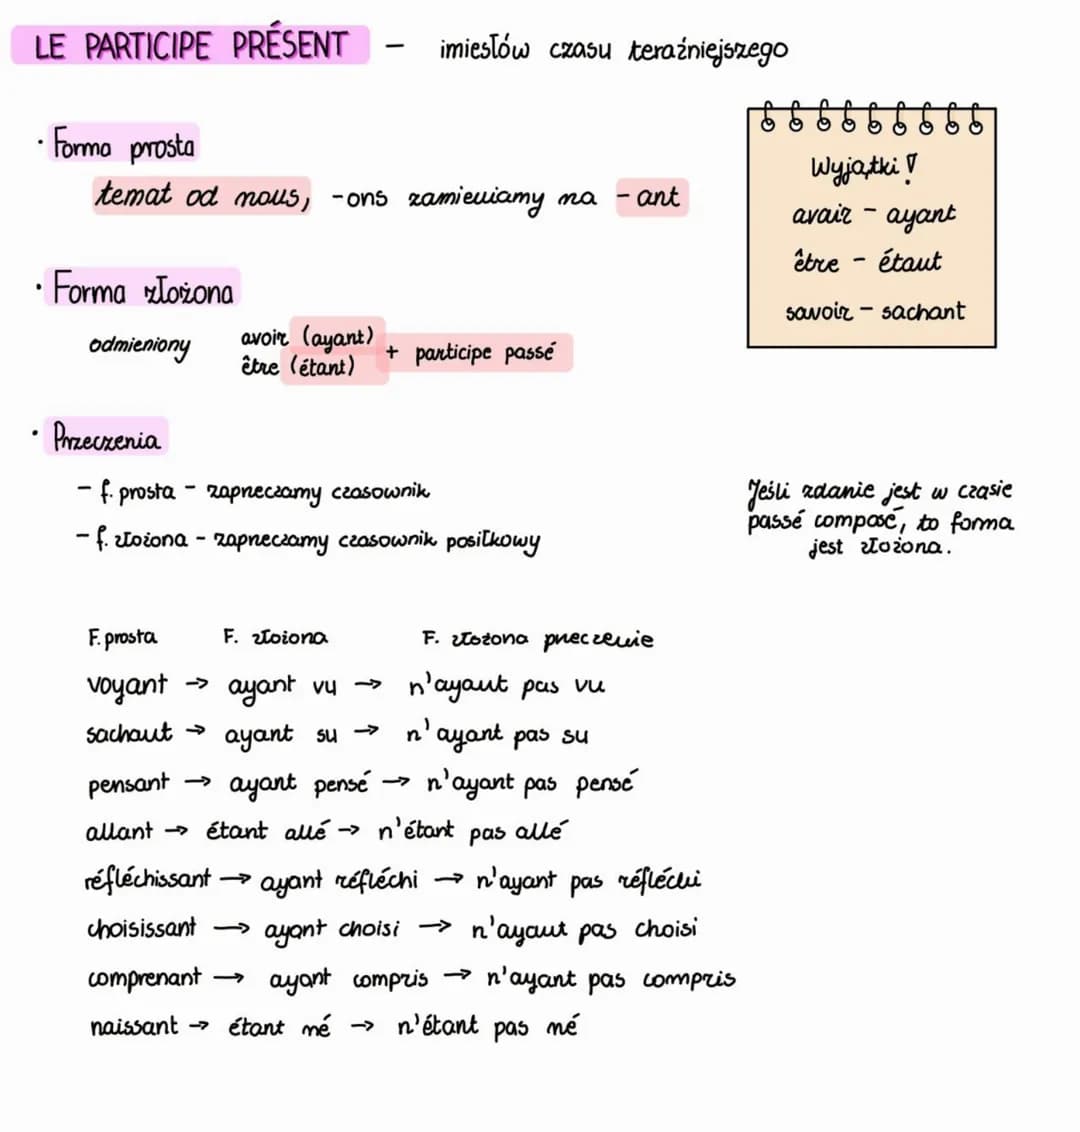 LE PARTICIPE PRÉSENT - imiesłów czasu teraźniejszego
· Forma prosta
temat od nous, -ons zamieniamy na -ant
Wyjątki!
avoir - ayant
être - étant
savoir - sachant
· Forma złożona
odmieniony
avoir (ayant)
être (étant)
+ participe passé
· Przeczenia
- f. prosta - zapreczamy czasownik
- f. złożona - zapreczamy czasownik posiłkowy
Jeśli zdanie jest w czasie
passé composé, to forma
jest złożona.
F. prosta F. złożona F. złożona przeczenie
voyant → ayant vu → n'ayant pas vu
sachant → ayant su → n'ayant pas su
pensant → ayant pensé → n'ayant pas pensé
allant → étant allé → n'étant pas allé
réfléchissant → ayant réfléchi → n'ayant pas réfléchi
choisissant → ayant choisi → n'ayant pas choisi
comprenant → ayant compris → n'ayant pas compris
naissant → étant né → n'étant pas né